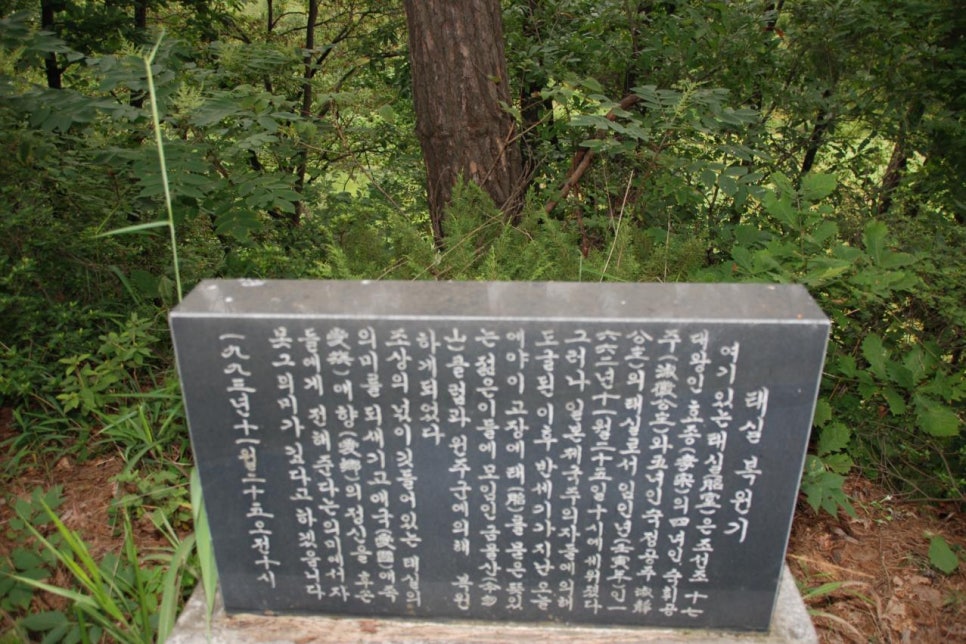 태실 복원기
여기 있는 태실(胎室)은 조선조 十七
대왕인 효종(孝宗)의 四녀인 숙휘공
주(淑徽公主)와 五녀인 숙정공주(淑靜
公主)의 태실로서 임인년(壬寅年一
六六二년 十一월 二十五일 十시에 세워졌다
그러나 일본제국주의자들에 의해
도굴된 이후 반세기가 지난 오늘
에야 이 고장에 태(胎)를 묻은 뜻있
는 젊은이들에 모임인 금물산(今勿
山)클럽과 원주군에 의해 복원
하게 되었다
조상의 넋이 깃들어 있는 태실의
의미를 되새기고 애국(愛國) 애족
(愛族) 애향(愛鄕)의 정신을 후손
들에게 전해 준다는 의미에서 자
못 그 의미가 있다고 하겠읍니다
一九九三년 十一월 二十五 오전 十시